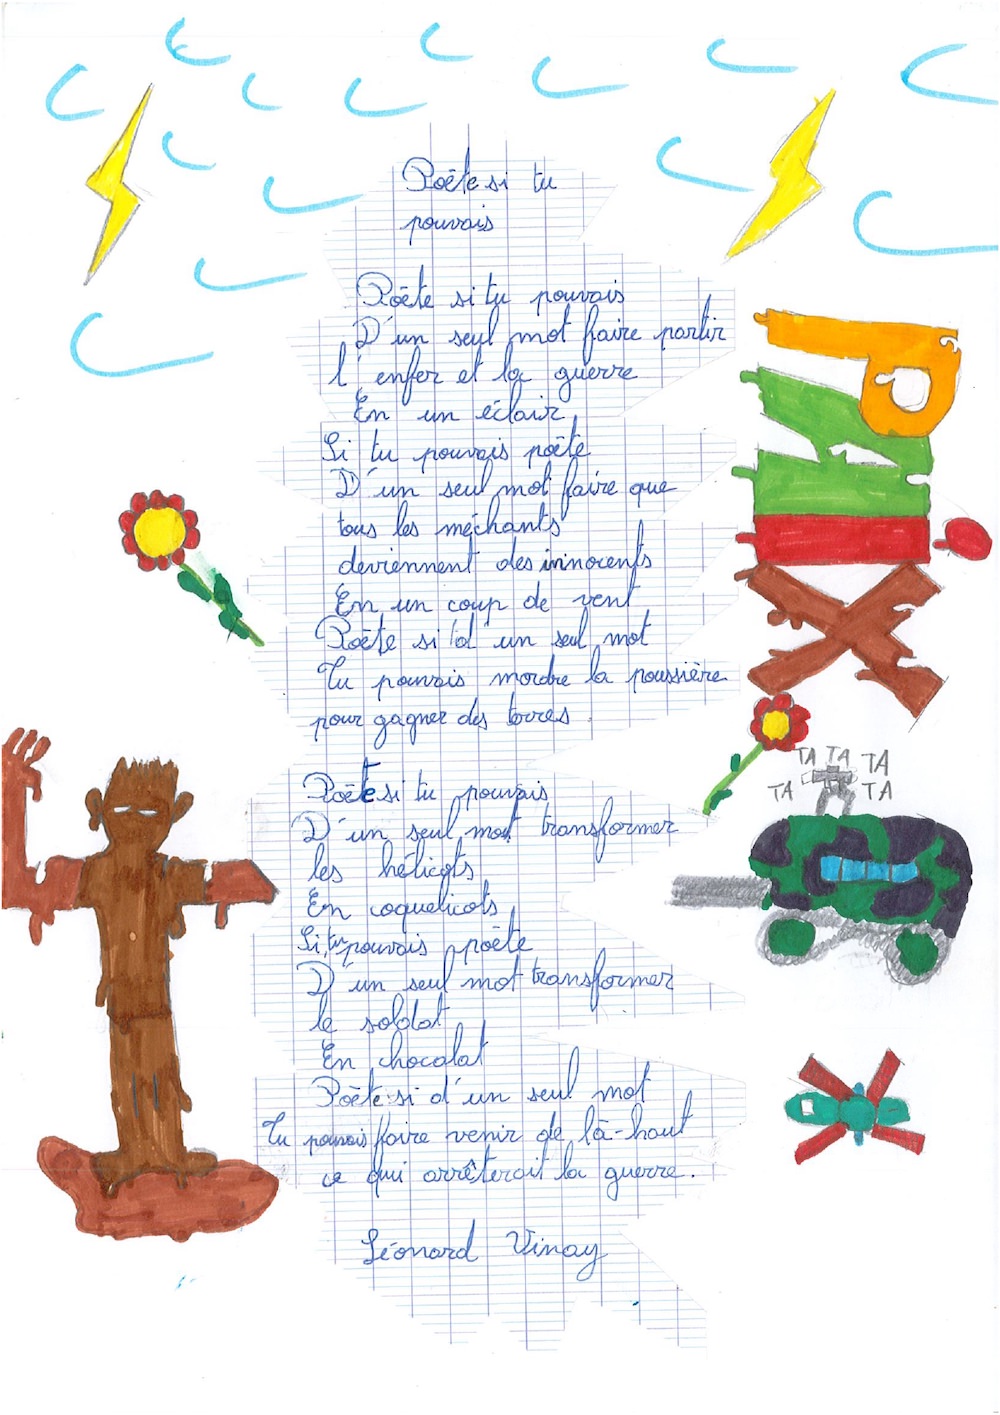 Poëte si tu
pouvais
Poëte si tu pouvais
D'un seul mot faire partir
l'enfer et la guerre
En un éclair
Si tu pouvais poëte
D'un seul mot faire que
tous les méchants
deviennent des innocents
En un coup de vent
Poëte si d'un seul mot
Tu pouvais mordre la poussière
pour gagner des terres.
Poëte si tu pouvais
D'un seul mot transformer
les hélicots
En coquelicots
Si tu pouvais poëte
D'un seul mot transformer
le soldat
En chocolat
Poëte si d'un seul mot
Tu pouvais faire venir de là-haut
ce qui arrêterait la guerre.
Léonard Vinay
TA TA TA
TA TA